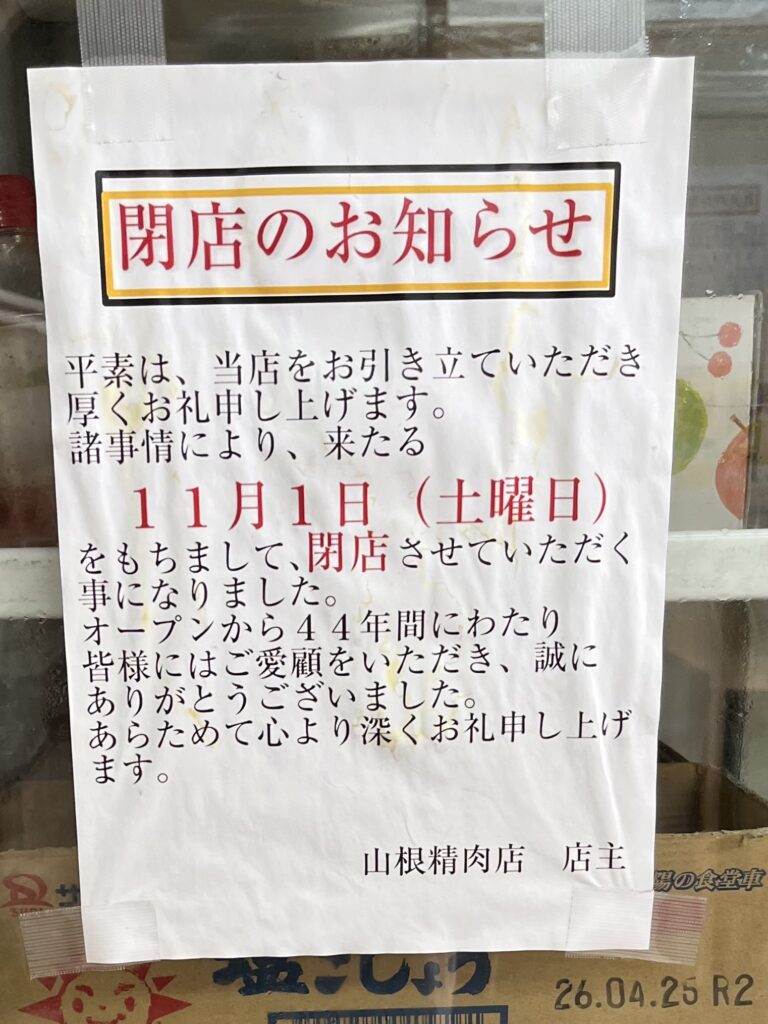 閉店のお知らせ
平素は、当店をお引き立ていただき
厚くお礼申し上げます。
諸事情により、来たる
１１月１日（土曜日）
をもちまして、閉店させていただく
事になりました。
オープンから４４年間にわたり
皆様にはご愛顧をいただき、誠に
ありがとうございました。
あらためて心より深くお礼申し上げ
ます。
山根精肉店　店主
の食堂車
塩こしょう
26.04.25 R2